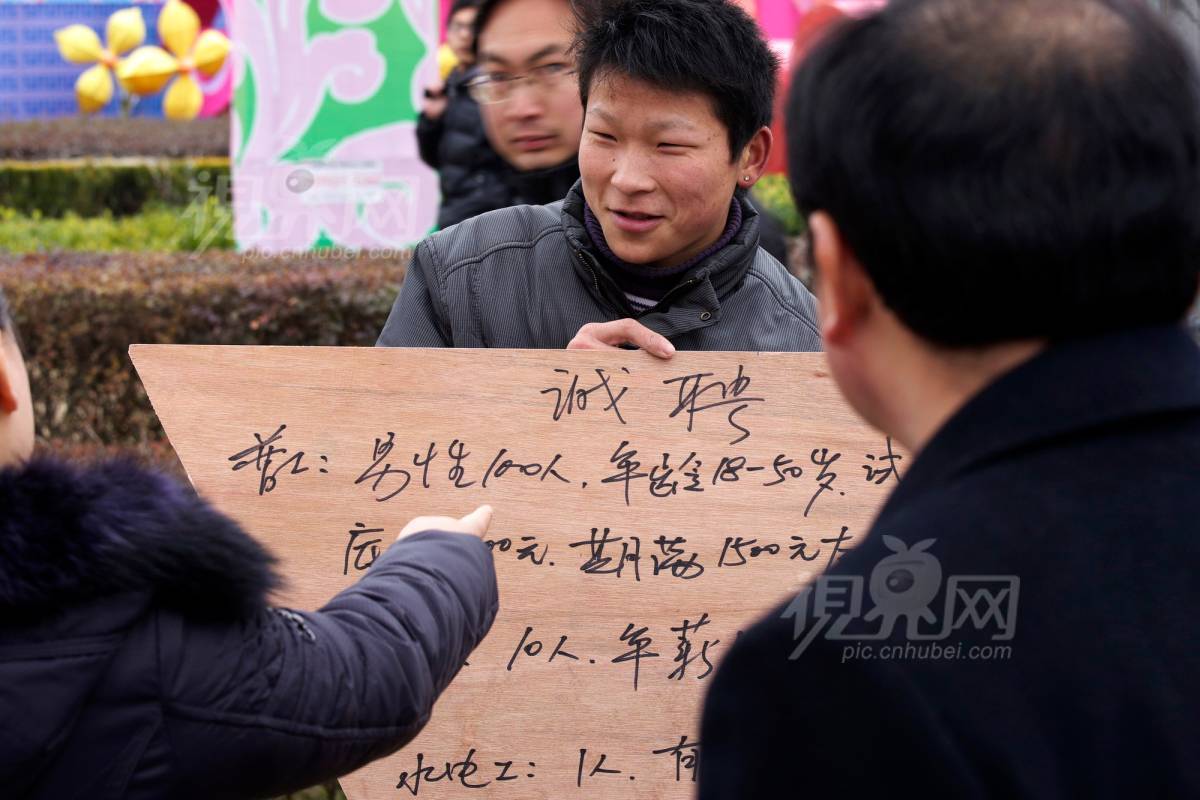 诚聘
普工:男性100人.年龄18-50岁.试
底 00元.期满1500元
10人.年薪
水电工:1人.有
视界网
pic.cnhubei.com
视界网
pic.cnhubei.com